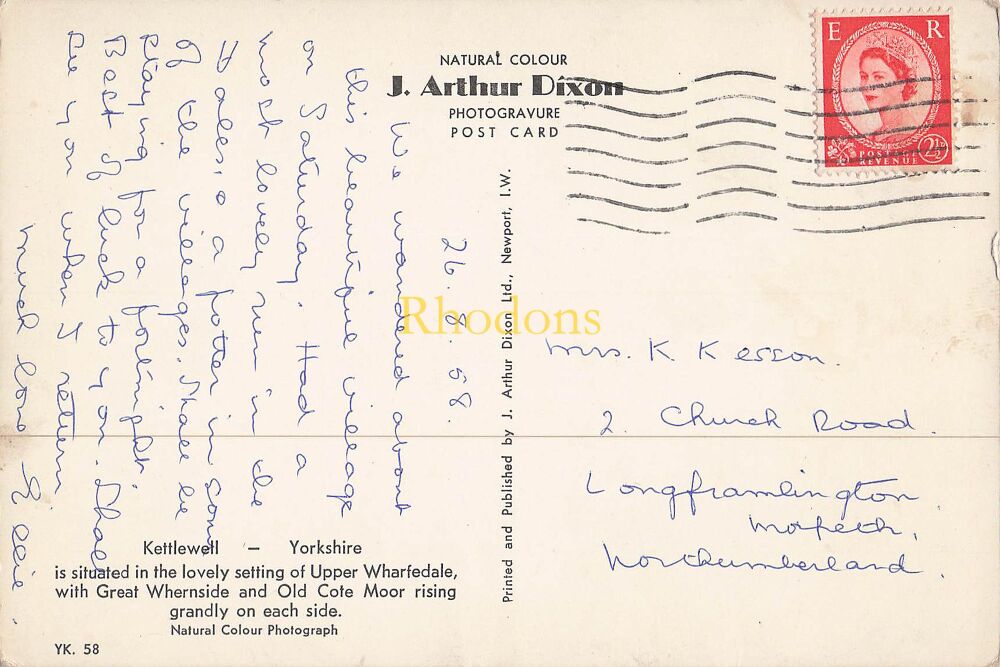 NATURAL COLOUR
J. Arthur Dixon
PHOTOGRAVURE
POST CARD
E R
POSTAGE
REVENUE
2½
26.8.58.
We wandered about
this beautiful village
on Saturday. Had a
most lovely run in the
Dales & a potter in some
of the villages. Shall be
staying for a fortnight.
Best of luck to you. Shall
see you when I return
much love
Mrs. K Kesson.
2. Church Road.
Longframlington
Morpeth,
Northumberland.
Rhodons
Printed and Published by J. Arthur Dixon Ltd., Newport, I.W.
Kettlewell – Yorkshire
is situated in the lovely setting of Upper Wharfedale,
with Great Whernside and Old Cote Moor rising
grandly on each side.
Natural Colour Photograph
YK. 58